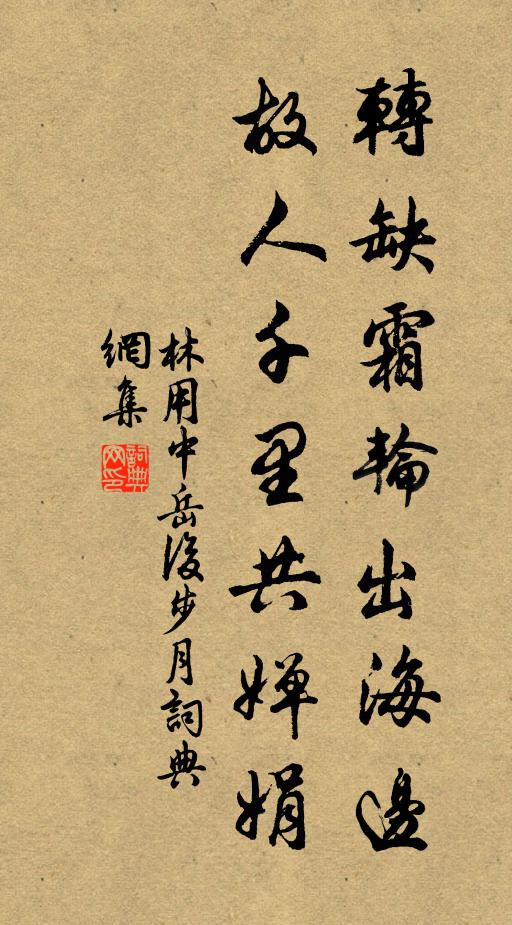 轉缺霜輪出海邊
故人千里共嬋娟
林用中岳後步月詞典
網集
詞典網印